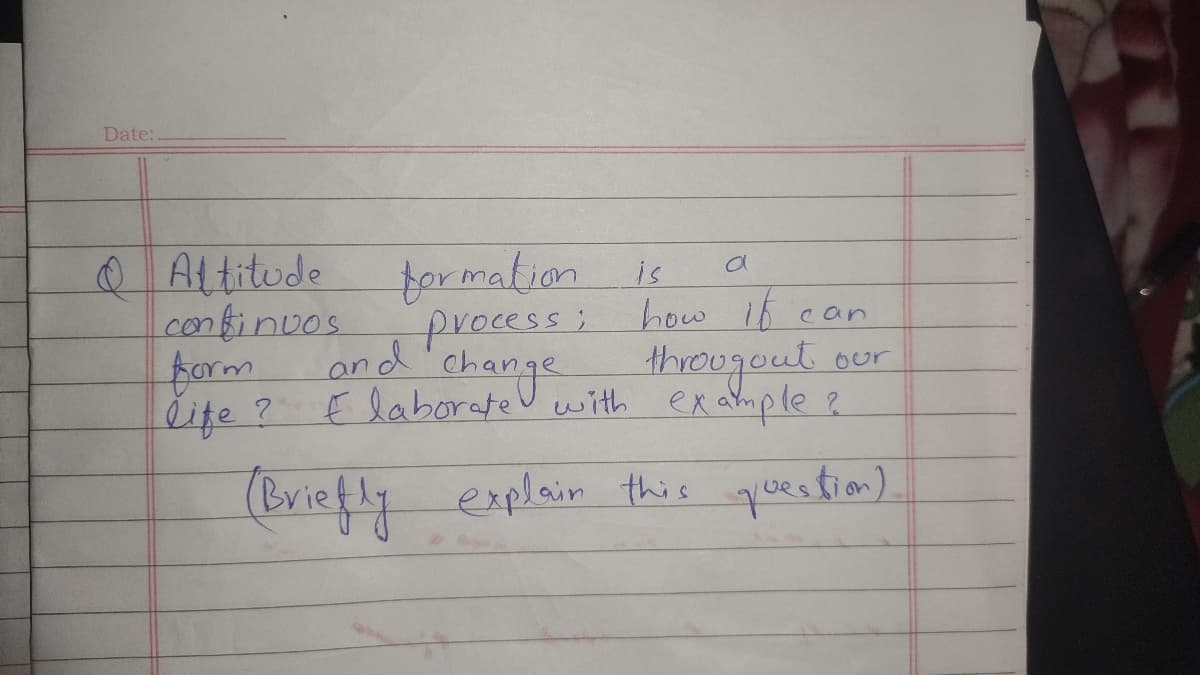 Date:
Q Attitude formation is a
continuos process; how it can
form and change througout our
life? Elaborate with example?
(Briefly explain this question)